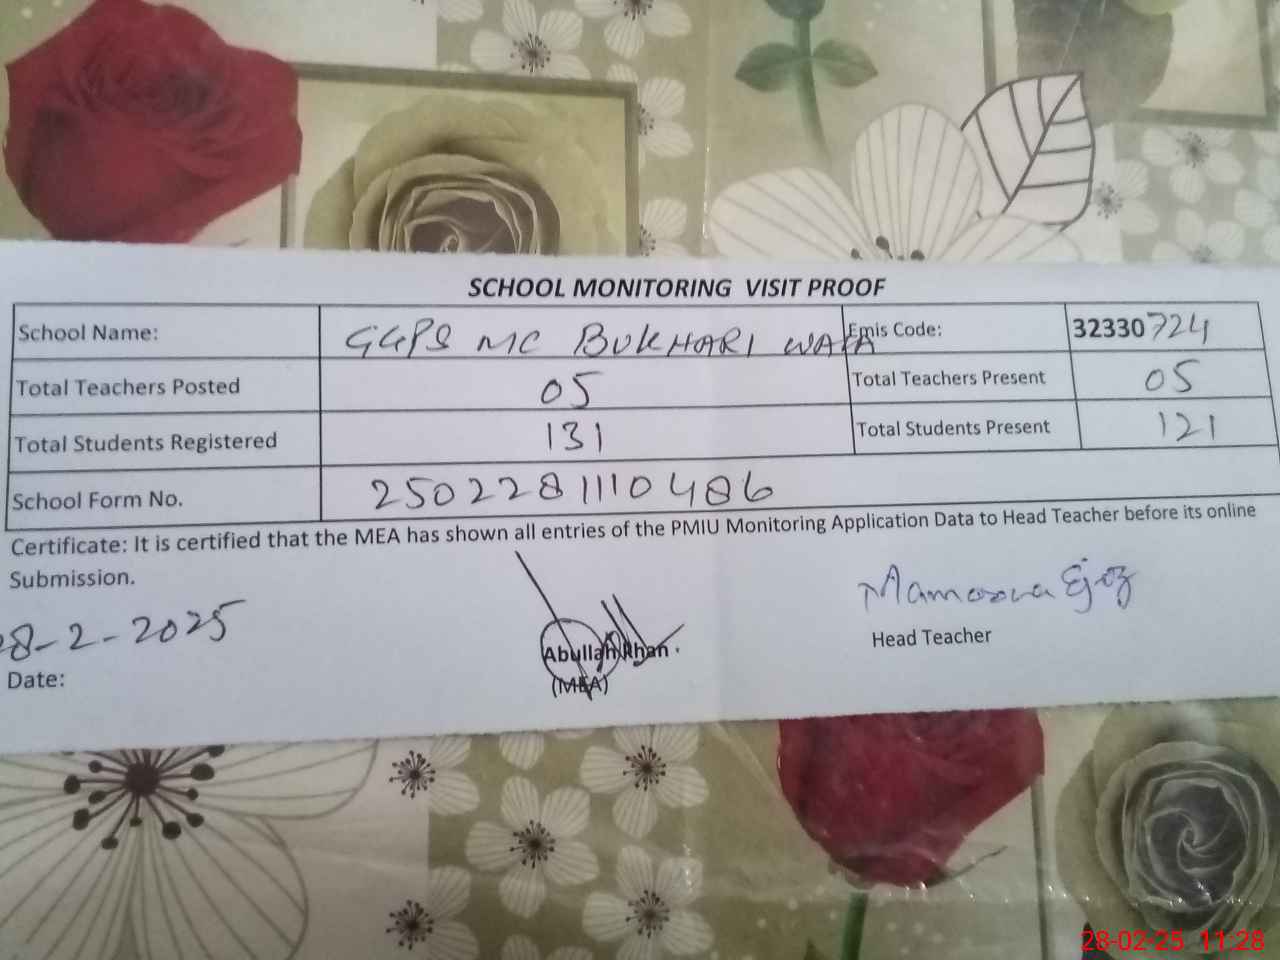 SCHOOL MONITORING VISIT PROOF
School Name: GGPS MC BUKHARI WALA Emis Code: 32330724
Total Teachers Posted 05 Total Teachers Present 05
Total Students Registered 131 Total Students Present 121
School Form No. 2502281110486
Certificate: It is certified that the MEA has shown all entries of the PMIU Monitoring Application Data to Head Teacher before its online
Submission.
28-2-2025
Date:
Abullah Khan
(MEA)
Head Teacher
28-02-25 11:28